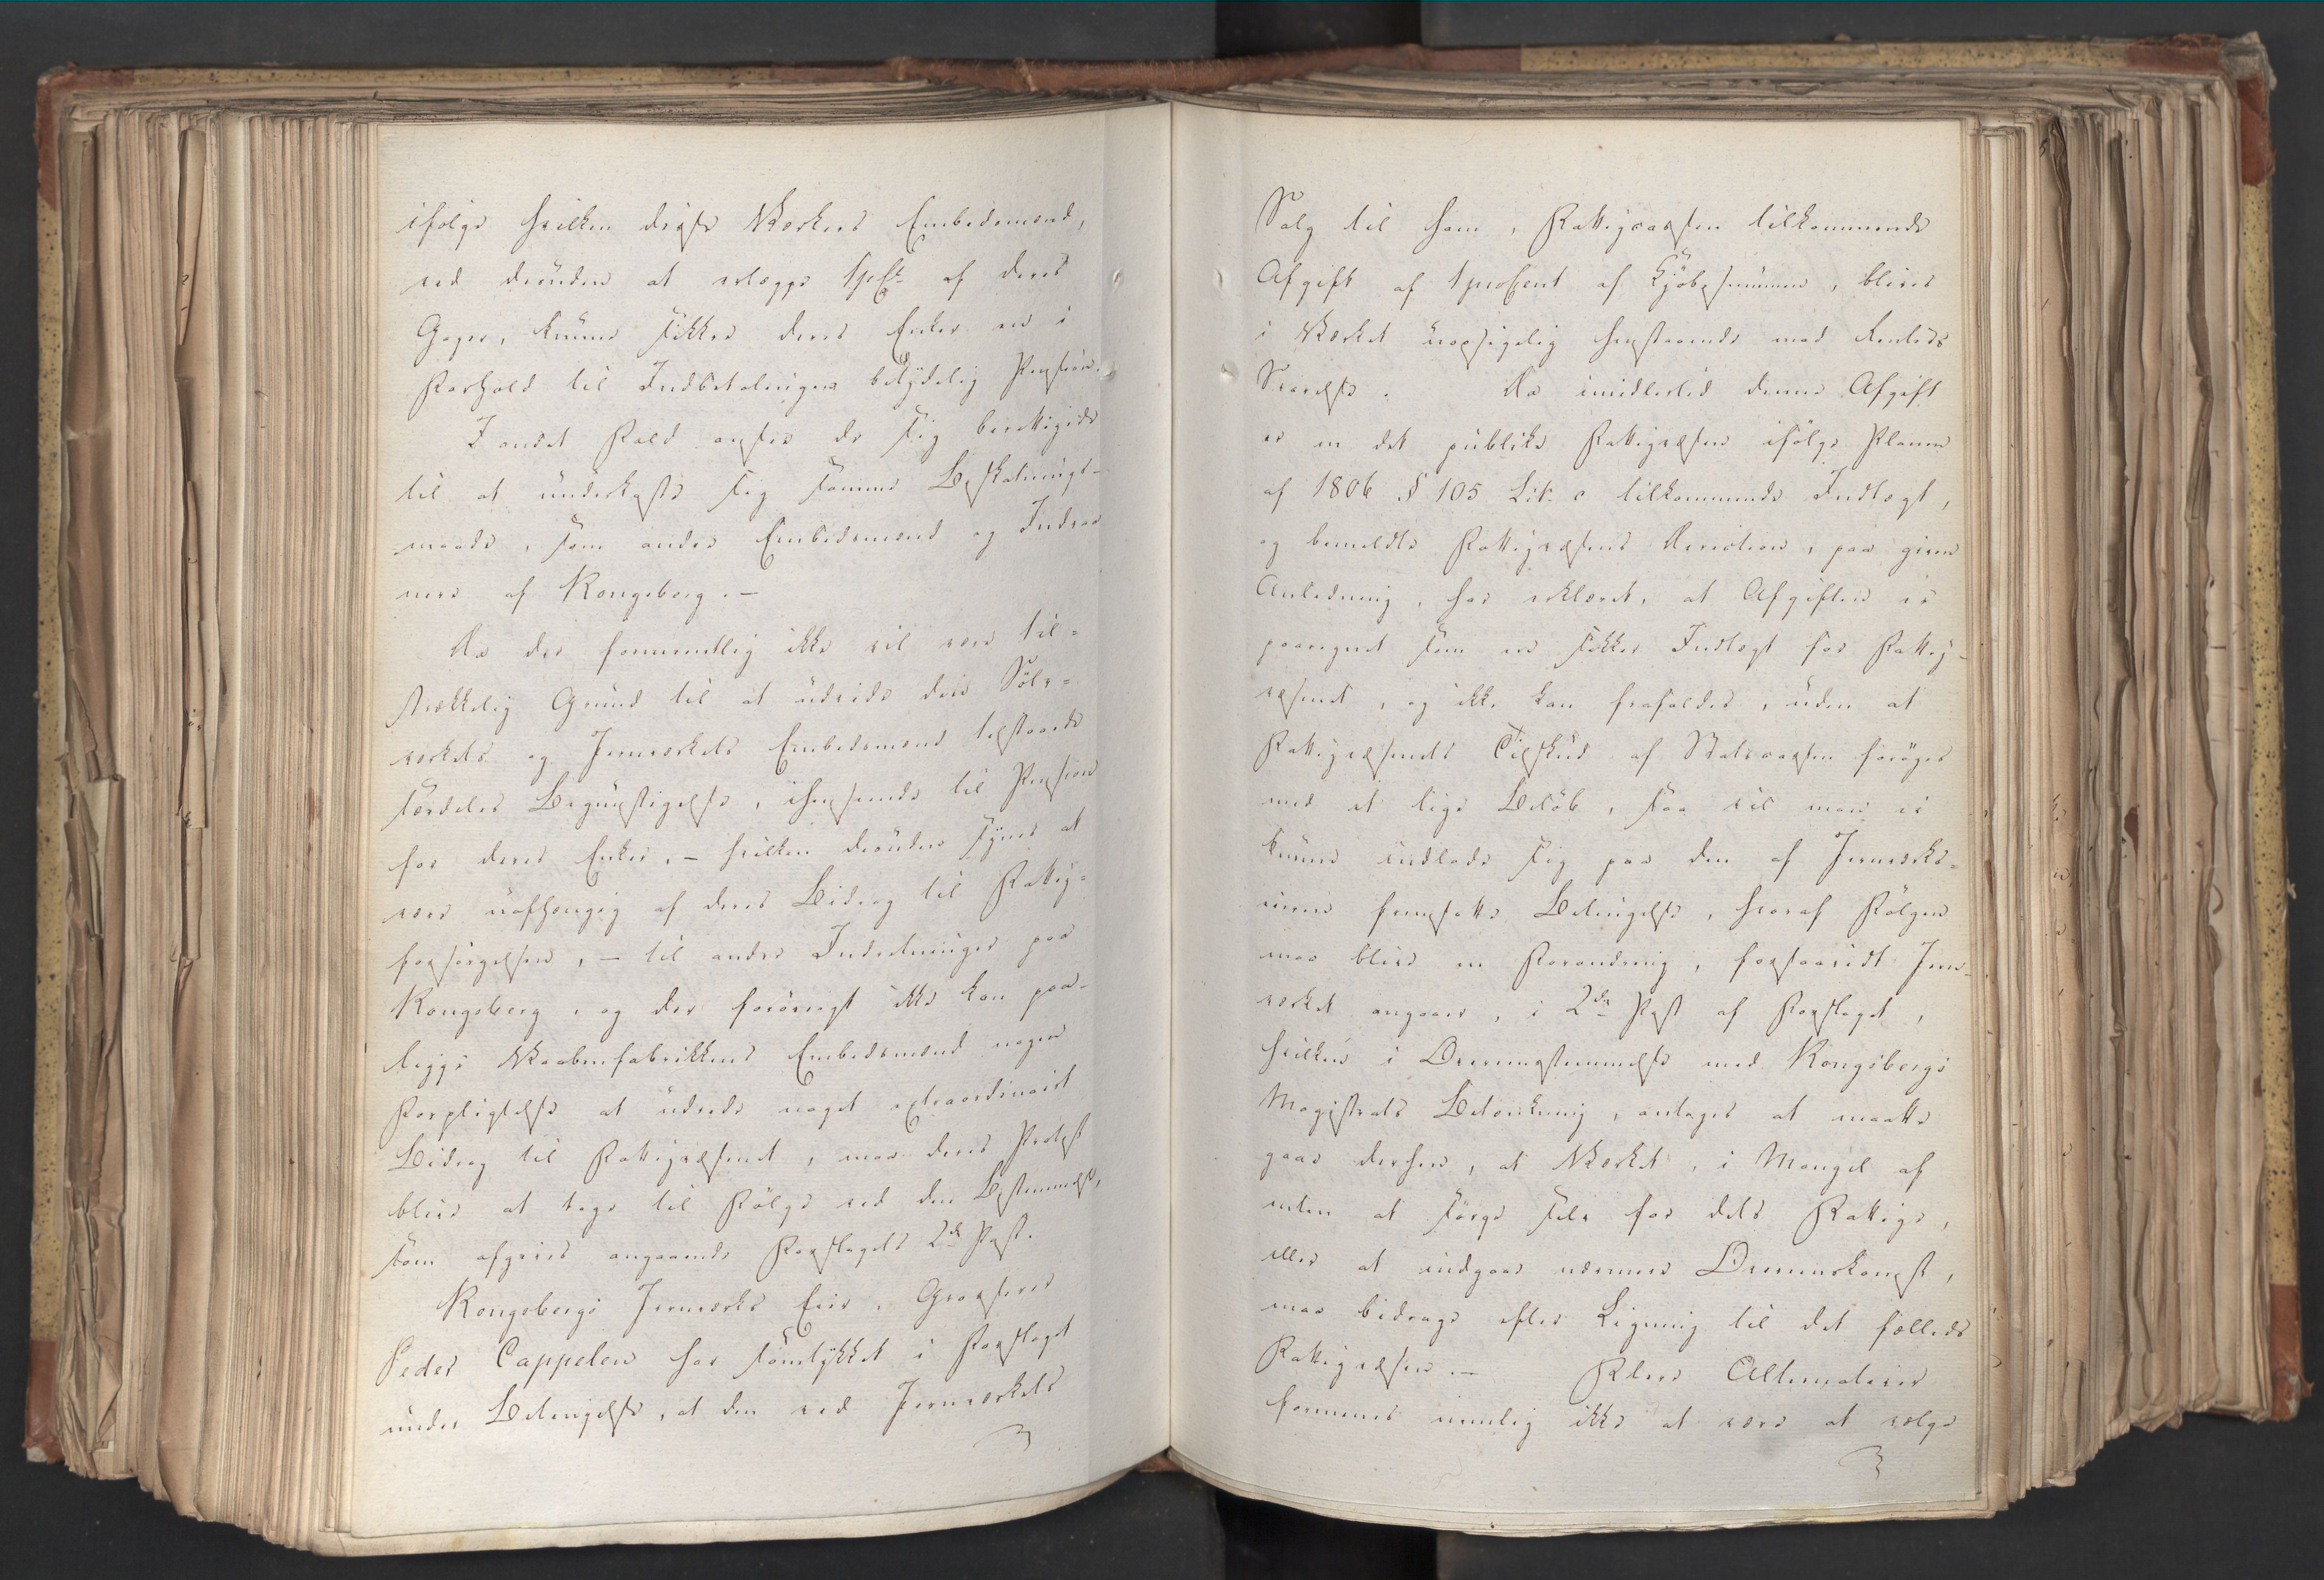 ifølge hvilken disse Værkers Embedsmænd,
ved desuden at erlægge 1pCt af deres
Gager, kunne sikkre deres Enker en i
Forhold til Indbetalingen betydelig Pension.
I andet Fald ansees de sig berettigede
til at underkaste sig samme Beskatnings-
maade, som andre Embedsmænd og Indvaa-
nere af Kongsberg. —
Da der formeentlig ikke vil være til-
strækkelig Grund til at udvide den Sölv-
værkets og Jernværkets Embedsmænd tilstaaede
særdeles Begunstigelse, ihenseende til Pension
for deres Enker, — hvilken desuden synes at
være uafhængig af deres Bidrag til Fattig-
forsørgelsen, — til andre Indretninger paa
Kongsberg, og der forövrigt ikke kan paa-
lægges Vaabenfabrikkens Embedsmænd nogen
Forpligtelse at udrede noget extraordinairt
Bidrag til Fattigvæsenet, maa deres Protest
blive at tage til Fölge ved den Bestemmelse,
som afgives angaaende Forslagets 2den Post.
Kongsbergs Jernværks Eier, Grosserer
Peder Cappelen har samtykket i Forslaget
under Betingelse, at den ved Jernværkets
Salg til ham, Fattigcassen tilkommende
Afgift af 1 proCent af Kjöbesummen, bliver
i Værket uopsigelig henstaaende mod Rentes
Svarelse. Da imidlertid denne Afgift
er en det publike Fattigvæsen ifölge Planen
af 1806 § 105 Lit. c tilkommende Indtægt,
og bemeldte Fattigvæsens Direction, paa given
Anledning, har erklæret, at Afgiften er
paaregnet som en sikker Indtægt for Fattig-
væsenet, og ikke kan frafaldes, uden at
Fattigvæsenets Tilskud af Statscassen foröges
med et lige Belöb, saa vil man ei
kunne indlade sig paa den af Jernværks-
eieren fremsatte Betingelse, hvoraf Fölgen
maa blive en Forandring, forsaavidt Jern-
værket angaaer, i 2den Post af Forslaget,
hvilken i Overensstemmelse med Kongsbergs
Magistrats Betænkning, antages at maatte
gaae derhen, at Værket, i Mangel af
enten at sörge selv for dets Fattige,
eller at indgaae nærmere Overenskomst,
maa bidrage efter Ligning til det fælleds
Fattigvæsen. — Flere Alternativer
formenes nemlig ikke at være at vælge